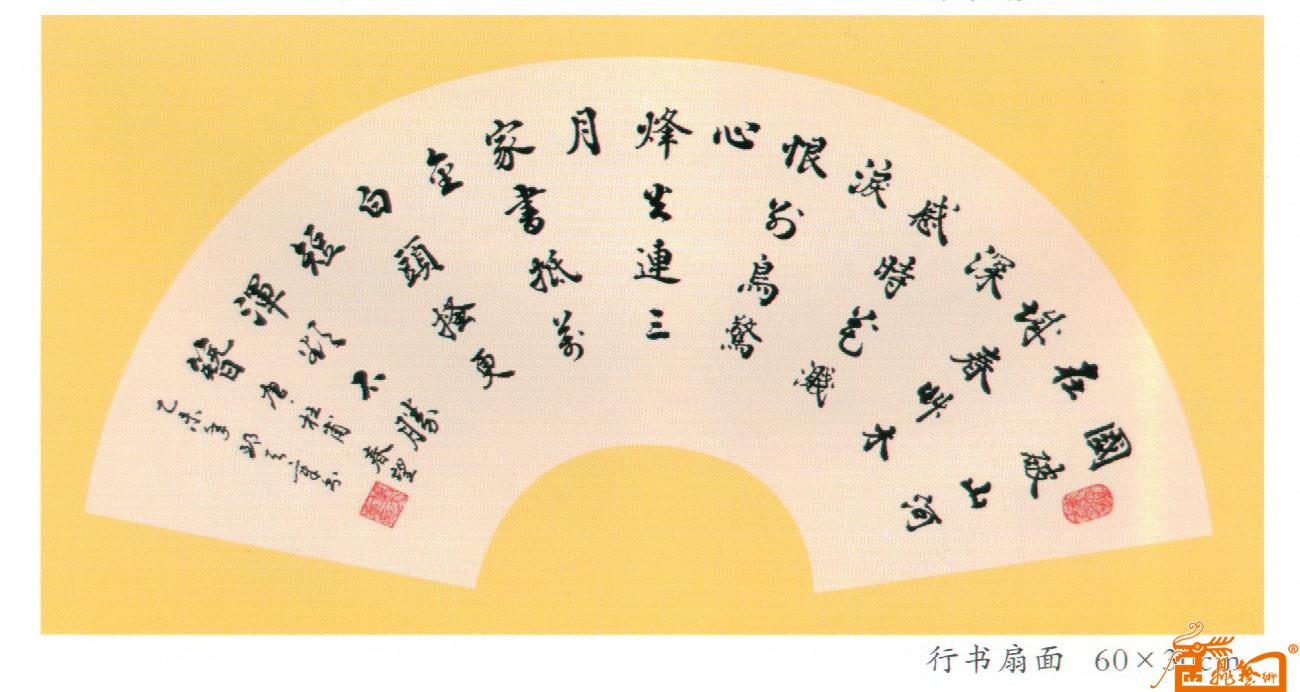 國破山河
在
城春艸木
深
感時花濺
淚
恨別鳥驚
心
烽火連三
月
家書抵萬
金
白頭搔更
短
渾欲不勝
簪
唐杜甫春望
乙未年
行书扇面 60×30cm